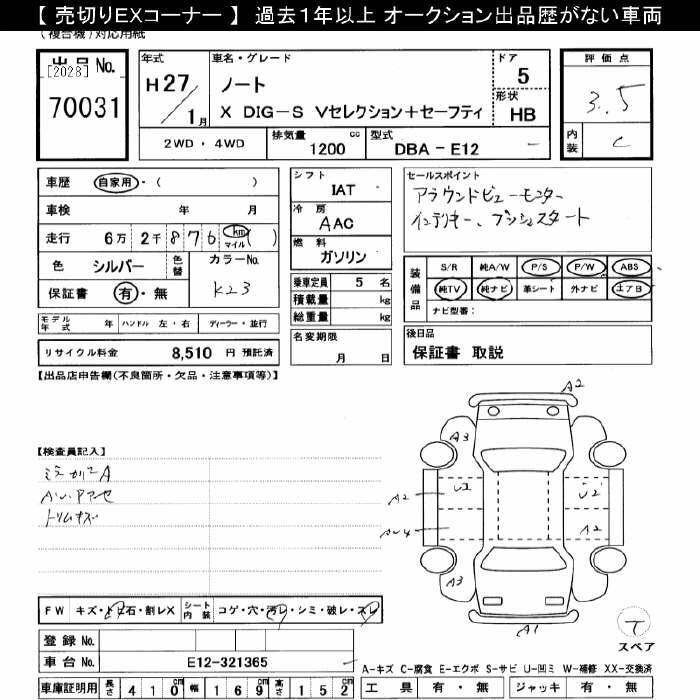 【 売切りEXコーナー 】 過去1年以上 オークション出品歴がない車両
(複合機)対応用紙
出品 No.
[2028]
70031
年式
H27/1月
車名・グレード
ノート
X DIG-S Vセレクション+セーフティ
ドア
5
形状
HB
評価点
3.5
内装
C
2WD・4WD
排気量
1200 cc
型式
DBA - E12 -
車歴 自家用・( )
車検 年 月
走行 6万 2千 8 7 6 km マイル ( )
色 シルバー
色替
カラーNo.
K23
保証書 有・無
シフト
IAT
冷房
AAC
燃料
ガソリン
乗車定員 5 名
積載量 kg
総重量 kg
名変期限
月 日
セールスポイント
アラウンドビューモニター
インテリキー、プッシュスタート
装備品
S/R 純A/W P/S P/W ABS
純TV 純ナビ 革シート 外ナビ エアB
ナビ型番:
後日品
保証書 取説
モデル年式 年 ハンドル 左・右 ディーラー・並行
リサイクル料金 8,510 円 預託済
【出品店申告欄(不良箇所・欠品・注意事項等)】
【検査員記入】
トリムキズ
A2
A3
A2
U2
U2
A2
A3
A1
スペア
FW キズ・トビ石・割レX
シート内装 コゲ・穴・汚レ・シミ・破レ・スレ
登録 No.
車台 No. E12-321365
車庫証明用 長さ 410 cm 幅 169 cm 高さ 152 cm
A-キズ C-腐食 E-エクボ S-サビ U-凹ミ W-補修 XX-交換済
工具 有・無 ジャッキ 有・無